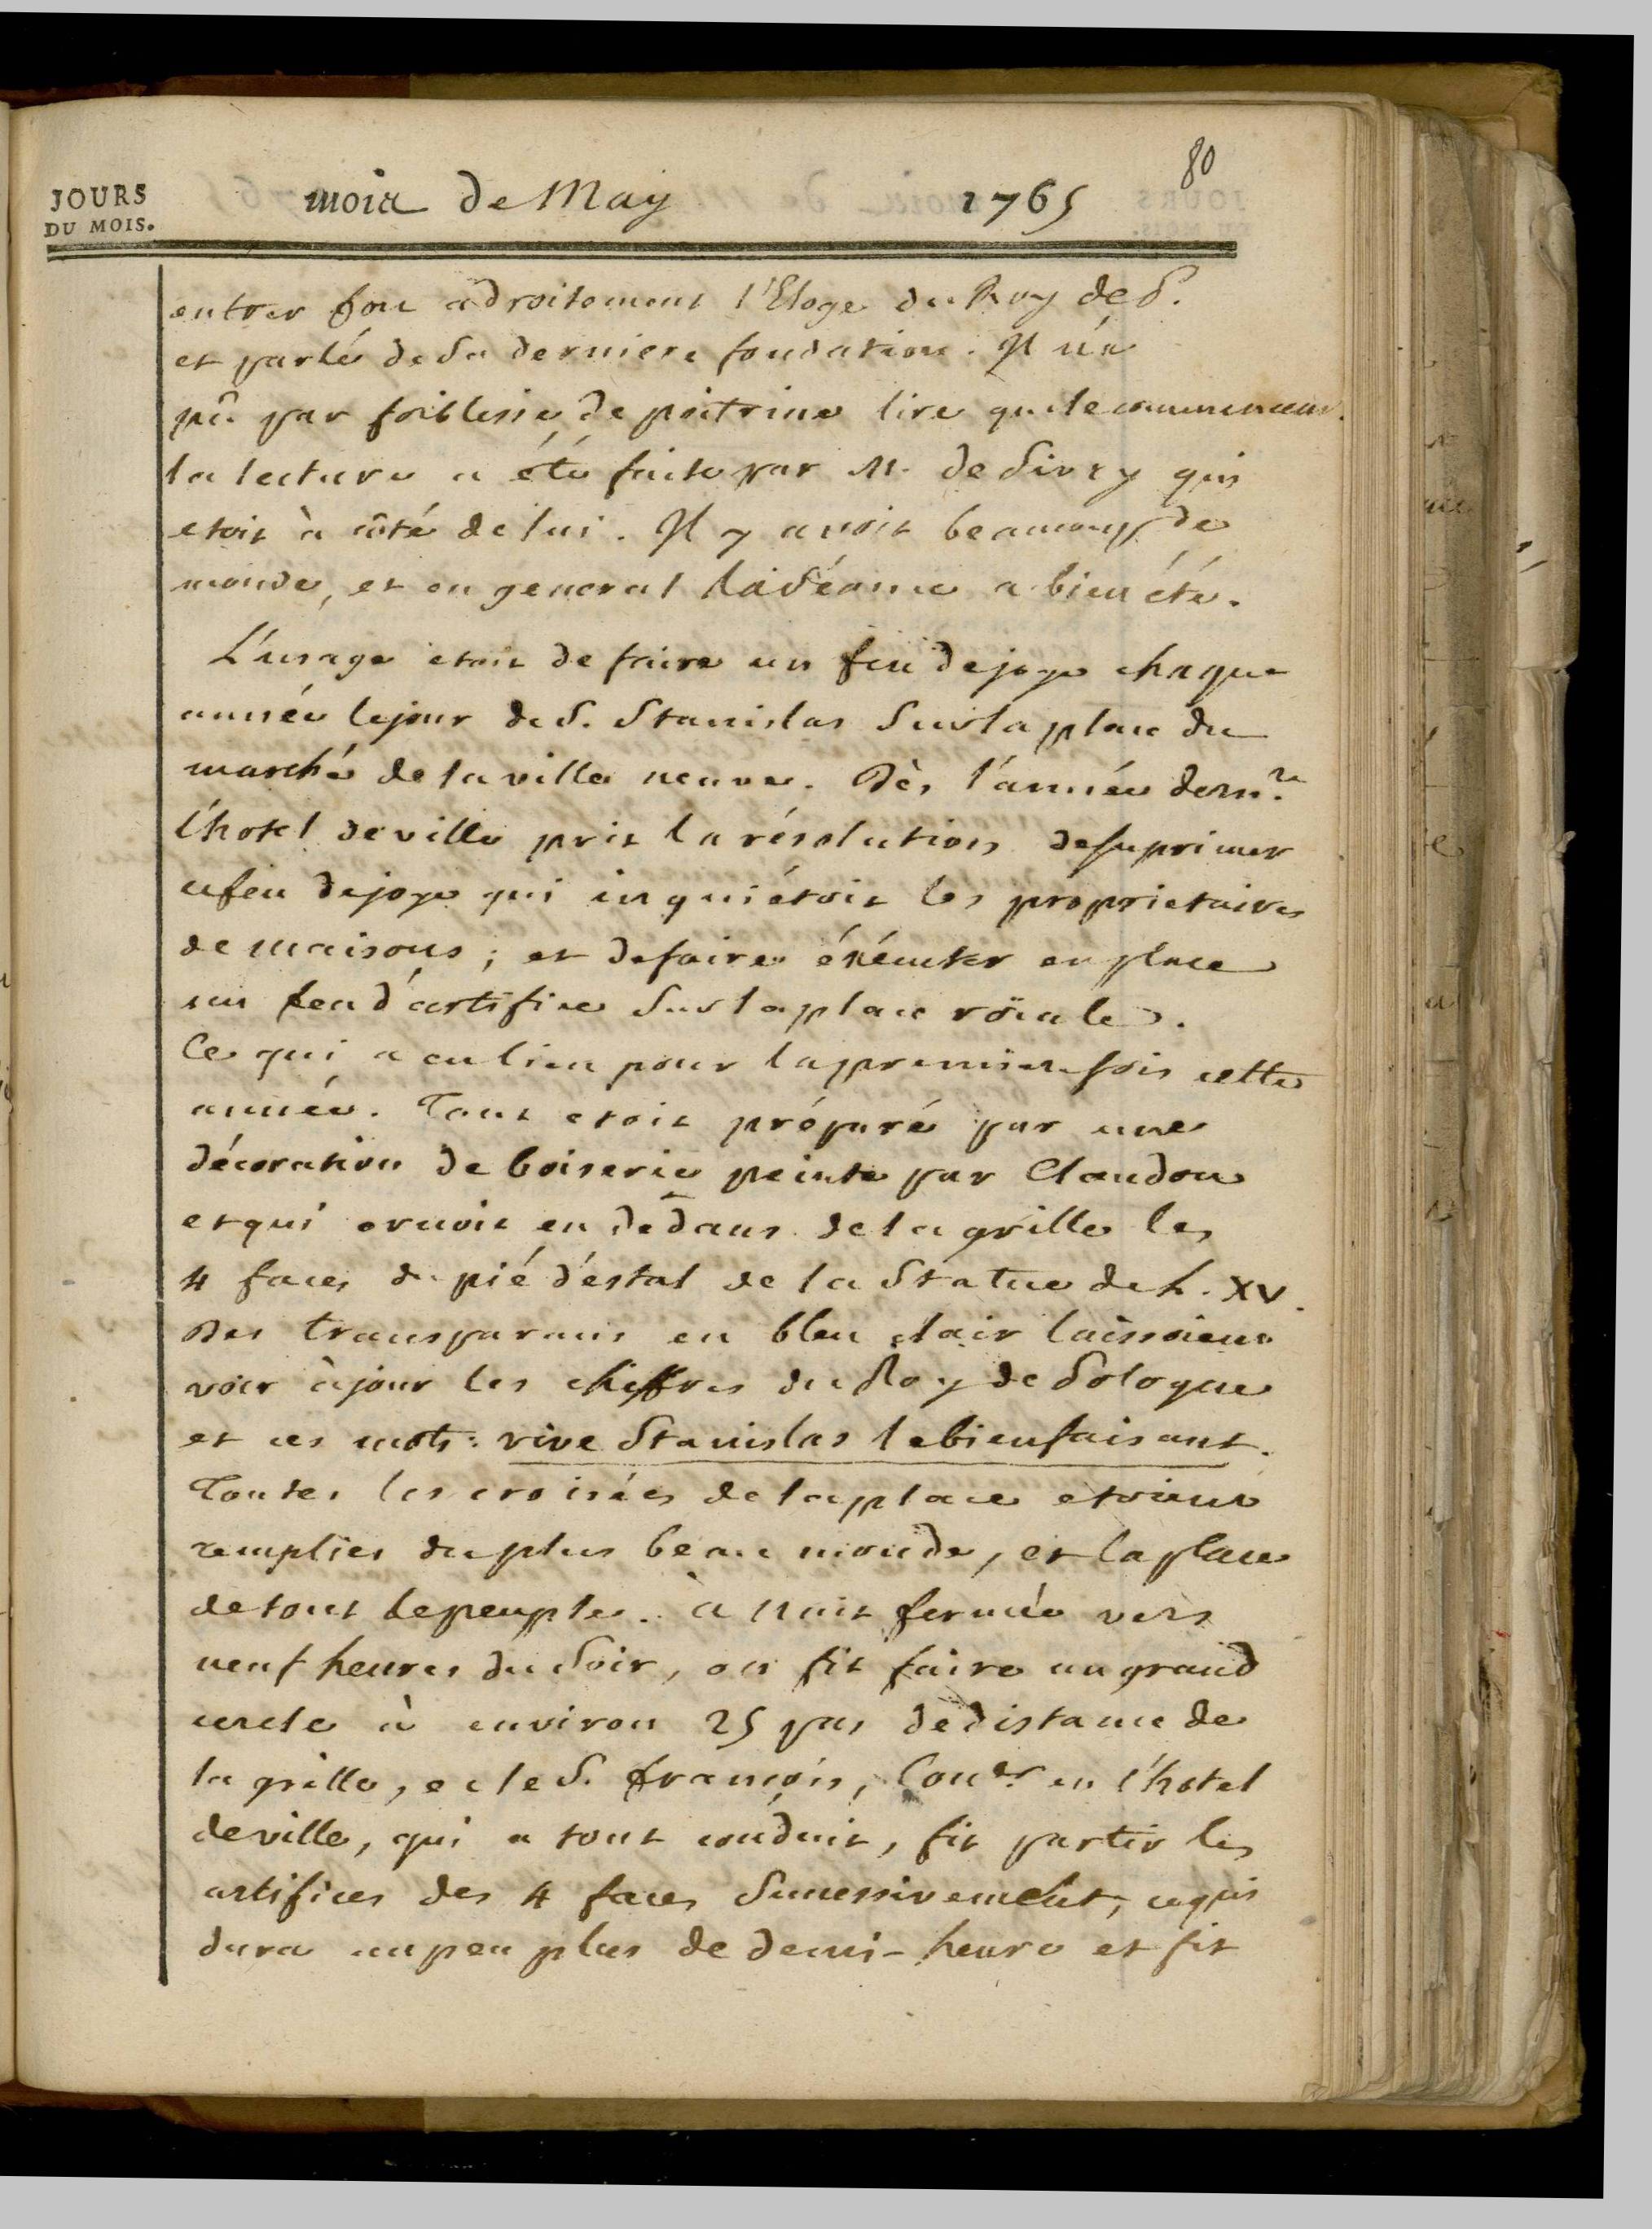 80
JOURS
DU MOIS.
mois de May 1765
entrer fort adroitement l'Eloge du Roy de P.
et parlé de Sa derniere fondation. Il n'a
pû par foiblesse de poitrine lire que le commencem.
la lecture a été faite par M. de Sivry qui
etoit à côté de lui. Il y avoit beaucoup de
monde, et en general la Séance a bien été.
L'usage etoit de faire un feu de joye chaque
année le jour de S. Stanislas Sur la place du
marché de la ville neuve. Dès l'année dern.re
l'hotel de ville prit la résolution de suprimer
ce feu de joye qui inquiétoit les proprietaires
de maisons; et de faire éxécuter en place
un feu d'artifice Sur la place roïale.
Ce qui a eu lieu pour la premiere fois cette
année. Tout etoit préparé par une
décoration de boiserie peinte par Claudon
et qui ornoit en dedans de la grille les
4 faces du pié d'estal de la Statue de L. XV.
Des transparans en bleu clair laissoient
voir à jour les chiffres du Roy de Pologne
et ces mots: vive Stanislas le bienfaisant.
Toutes les croisées de la place etoient
remplies du plus beau monde, et la place
de tout le peuple. à nuit fermée vers
neuf heures du Soir, on fit faire un grand
cercle à environ 25 pas de distance de
la grille, et le S. françois, Con.er en l'hotel
de ville, qui a tout conduit, fit partir les
artifices des 4 faces Successivement, ce qui
dura un peu plus de demi-heure et fit